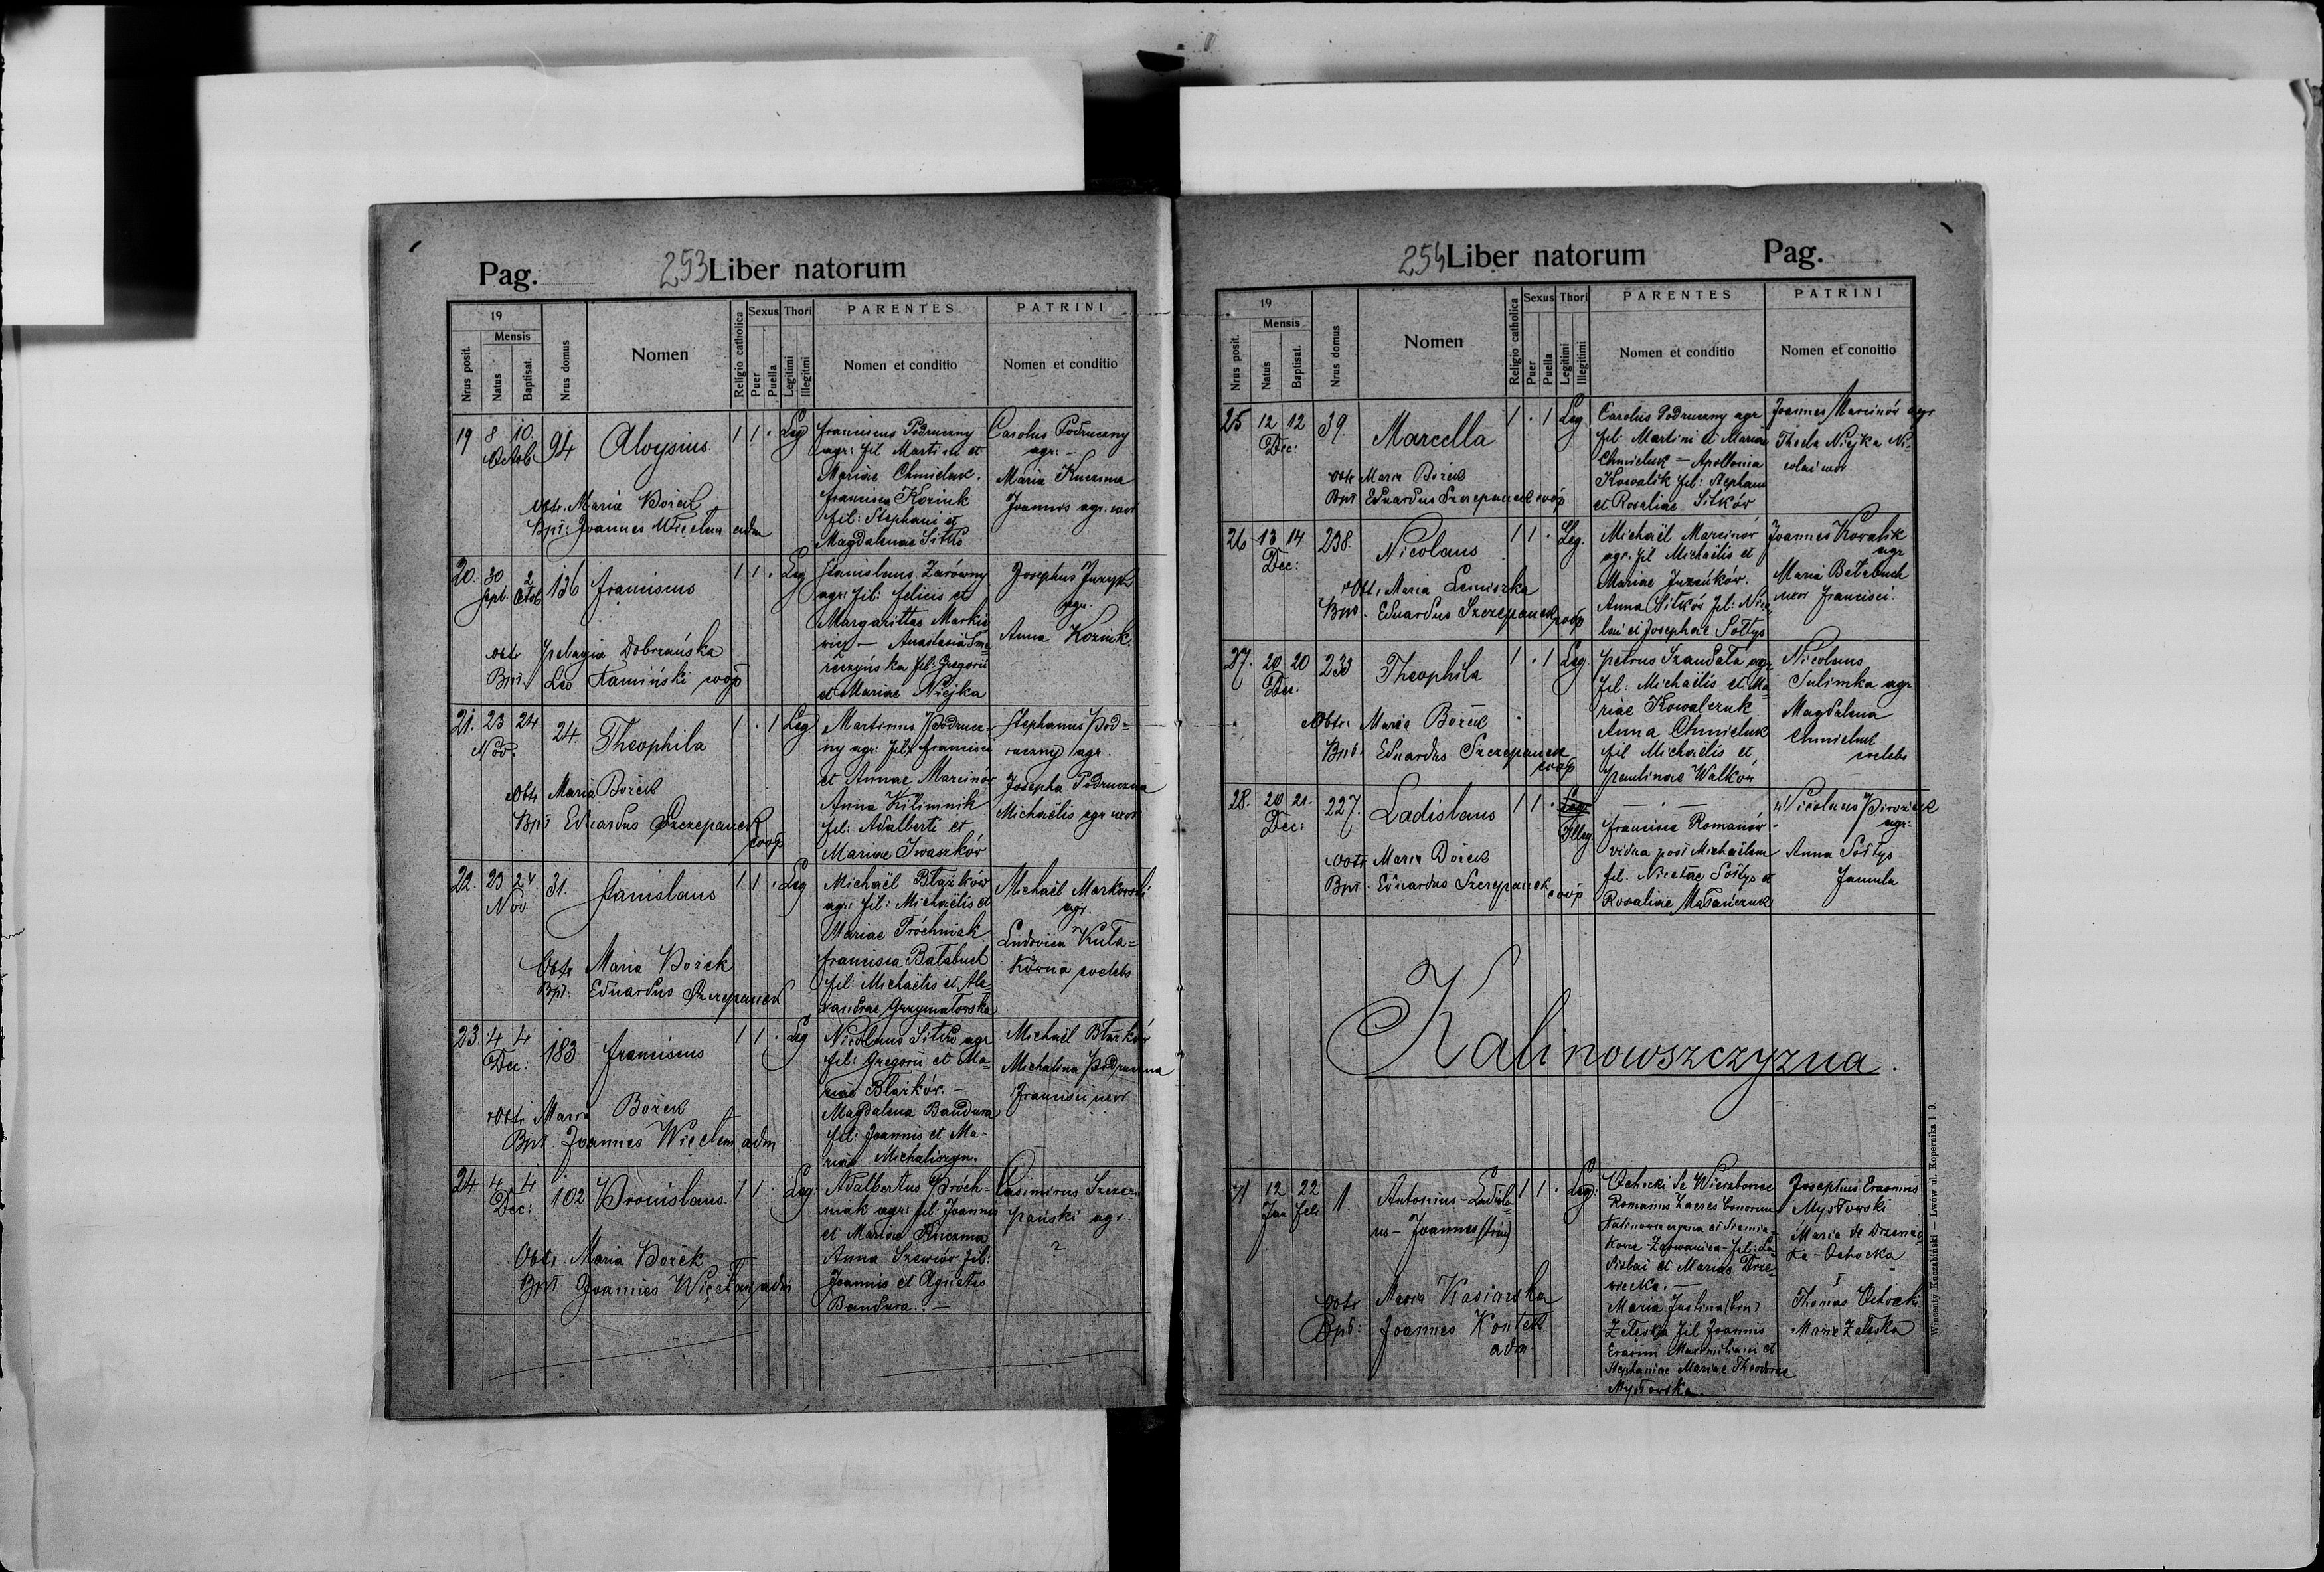 Pag.
253 Liber natorum
19
Mensis
Nrus posit.
Natus
Baptisat.
Nrus domus
Nomen
Religio catholica
Sexus
Puer
Puella
Thori
Legitimi
Illegitimi
PARENTES
Nomen et conditio
PATRINI
Nomen et conditio
19 8 10 94 Aloysius 1 1 . Leg Franciscus Podruczny Carolus Podruczny
Octob. agr: fil Martini et agr: -
Mariae Chmieluk. Maria Kuczma
Francisca Koziuk Joannis agr. uxor
Obtr. Maria Bożek fil: Stephani et
Bpt: Joannes Więcław adm Magdalenae Sitko
20. 30 2 136 Franciscus 1 1 . Leg Stanislaus Zarówny Josephus
Sept. Octob agr: fil: Felicis et agr.
Margarittae Markie
wicz - Anastasia Sme Anna Koziuk
obtr Pelagia Dobrzańska reczyńska fil: Gregorii
Bpt. Leo Kamiński coop et Mariae Niejka
21. 23 24 24. Theophila 1 . 1 Leg Martinus Podrucz- Stephanus Pod=
Nov. ny agr: fil: Francisci ruczny agr.
et Annae Marcinów Josepha Podruczna
Obtr Maria Bożek Anna Kilimnik Michaëlis agr uxor
Bpt Eduardus Szczepanek coop fil: Adalberti et
Mariae Iwaszków
22. 23 24. 31. Stanislaus 1 1 . Leg Michaël Błażków Michaël Markowski
Nov. agr: fil: Michaëlis et agr.
Mariae Tróchniak Ludovica Kuła=
Obtr Maria Bożek Francisca Bałabuch kówna coelebs
Bpt: Eduardus Szczepanek fil: Michaëlis et Ale
xandrae Grzymałowska
23 4 4 183 Franciscus 1 1 . Leg Nicolaus Sitko agr Michaël Błażków
Dec: fil: Gregorii et Ma- Michalina Podruczna
riae Błażków. - Francisci uxor
Obtr Maria Bożek Magdalena Bandura
Bpt Joannes Więcław adm fil: Joannis et Ma-
riae Michaliszyn.
24. 4 4 102 Bronislaus. 1 1 . Leg. Adalbertus Proch- Casimirus Szcze
Dec: niak agr: fil: Joannis pański agr.
et Mariae Kuczma ?
Obtr Maria Bożek Anna Szewców fil:
Bpt Joannes Więcław adm Joannis et Agnetis
Bandura. -
254 Liber natorum
Pag.
19
Mensis
Nrus posit.
Natus
Baptisat.
Nrus domus
Nomen
Religio catholica
Sexus
Puer
Puella
Thori
Legitimi
Illegitimi
PARENTES
Nomen et conditio
PATRINI
Nomen et conoitio
25 12 12 39. Marcella 1 . 1 Leg Carolus Podruczny agr Joannes Marcinów agr
Dec: fil: Martini et Mariae Thecla Niejka Ni=
Chmieluk - Apollonia colai uxor
obtr Maria Bożek Kowalik fil: Stephani
Bpt: Eduardus Szczepanek coop et Rosaliae Sitków
26 13 14 238. Nicolaus 1 1 . Leg. Michaël Marcinów Joannes Kowalik
Dec: agr. fil Michaëlis et agr
Mariae Maria Bałabuch
Obt. Maria Lemiszka Anna Sitków fil: Nico uxor Francisci.
Bpt. Eduardus Szczepanek coop lai et Josephae Sołtys
27. 20 20 233 Theophila 1 . 1 Leg Petrus Szandała agr Nicolaus
Dec. fil: Michaëlis et Ma Sulimka agr
riae Kowalczuk Magdalena
Obtr. Maria Bożek Anna Chmieluk Chmieluk
Bpt. Eduardus Szczepanek coop fil Michaëlis et coelebs
Paulinae Walków
28. 20 21. 227. Ladislaus 1 1 . Leg - . - Nicolaus Pirożek
Dec: Illeg. Francisca Romanów agr:
vidua post Michaëlem Anna Sołtys
obtr Maria Bożek fil. Nicetae Sołtys et famula
Bpt. Eduardus Szczepanek coop Rosaliae Małańczuk
Kalinowszczyzna.
1 12 22 1. Antonius-Ladisla= 1 1 . Leg. Ochocki de Wierzbowiec Josephus Erasmus
Jan feb us - Joannes (trin) Romanus haeres bonorum Mysłowski
Kalinowszczyzna et Siemia- Maria de Drzewiec
kowce - Zarwanica - fil: La ka - Ochocka
dislai et Mariae Drze=
wiecka. -
obtr Maria Kasiańska Maria Justina (bin) Thomas Ochocki
Bpt: Joannes Kontek adm. Załęska fil Joannis Maria Załęska
Erasmi Maximiliani et
Stephaniae Mariae Theodorae
Mysłowska.
Wincenty Kuczabiński — Lwów ul. Kopernika l 9.